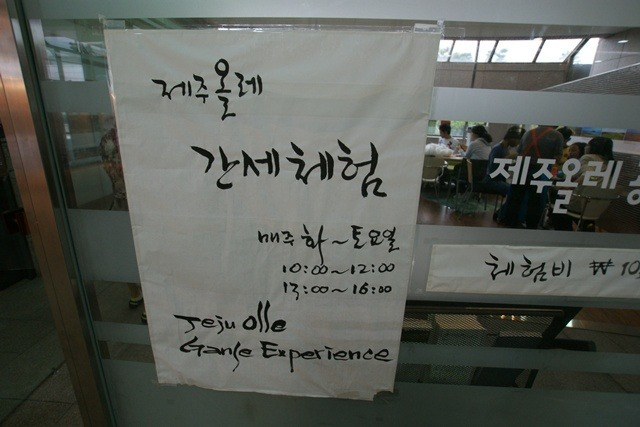 제주올레
간세체험
매주 화~토요일
10:00~12:00
13:00~16:00
Jeju Olle
Ganse Experience
제주올레
체험비 ₩10